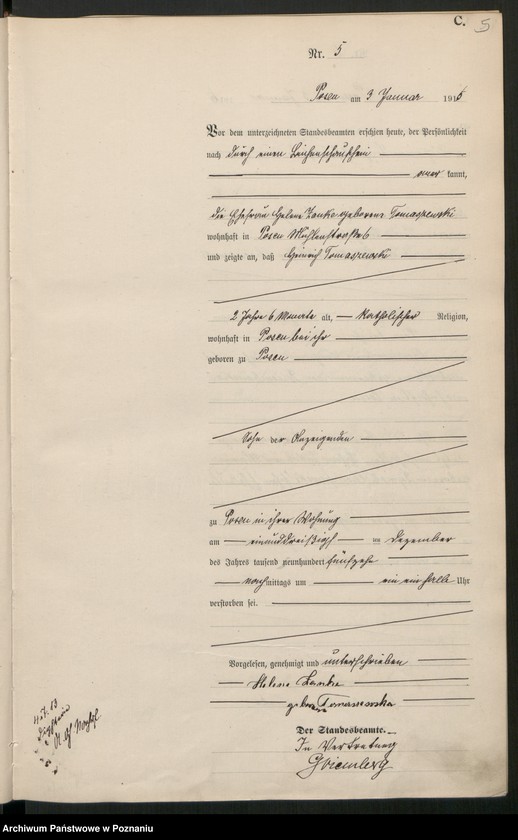 C. 5
Nr. 5
Posen am 3 Januar 1915
Vor dem unterzeichneten Standesbeamten erschien heute, der Persönlichkeit
nach durch einen Leichenschauschein
kannt,
die Ehefrau Helene Lanke geborene Tomaszewski
wohnhaft in Posen Mühlenstraße 6
und zeigte an, daß Heinrich Tomaszewski
2 Jahre 6 Monate alt, katholischer Religion,
wohnhaft in Posen bei ihr
geboren zu Posen
Sohn der Anzeigenden
zu Posen in ihrer Wohnung
am einunddreißigsten Dezember
des Jahres tausend neunhundert
nachmittags um ein ein halb Uhr
verstorben sei.
Vorgelesen, genehmigt und unterschrieben
Helene Lanke
geborene Tomaszewska
Der Standesbeamte.
In Vertretung
Archiwum Państwowe w Poznaniu